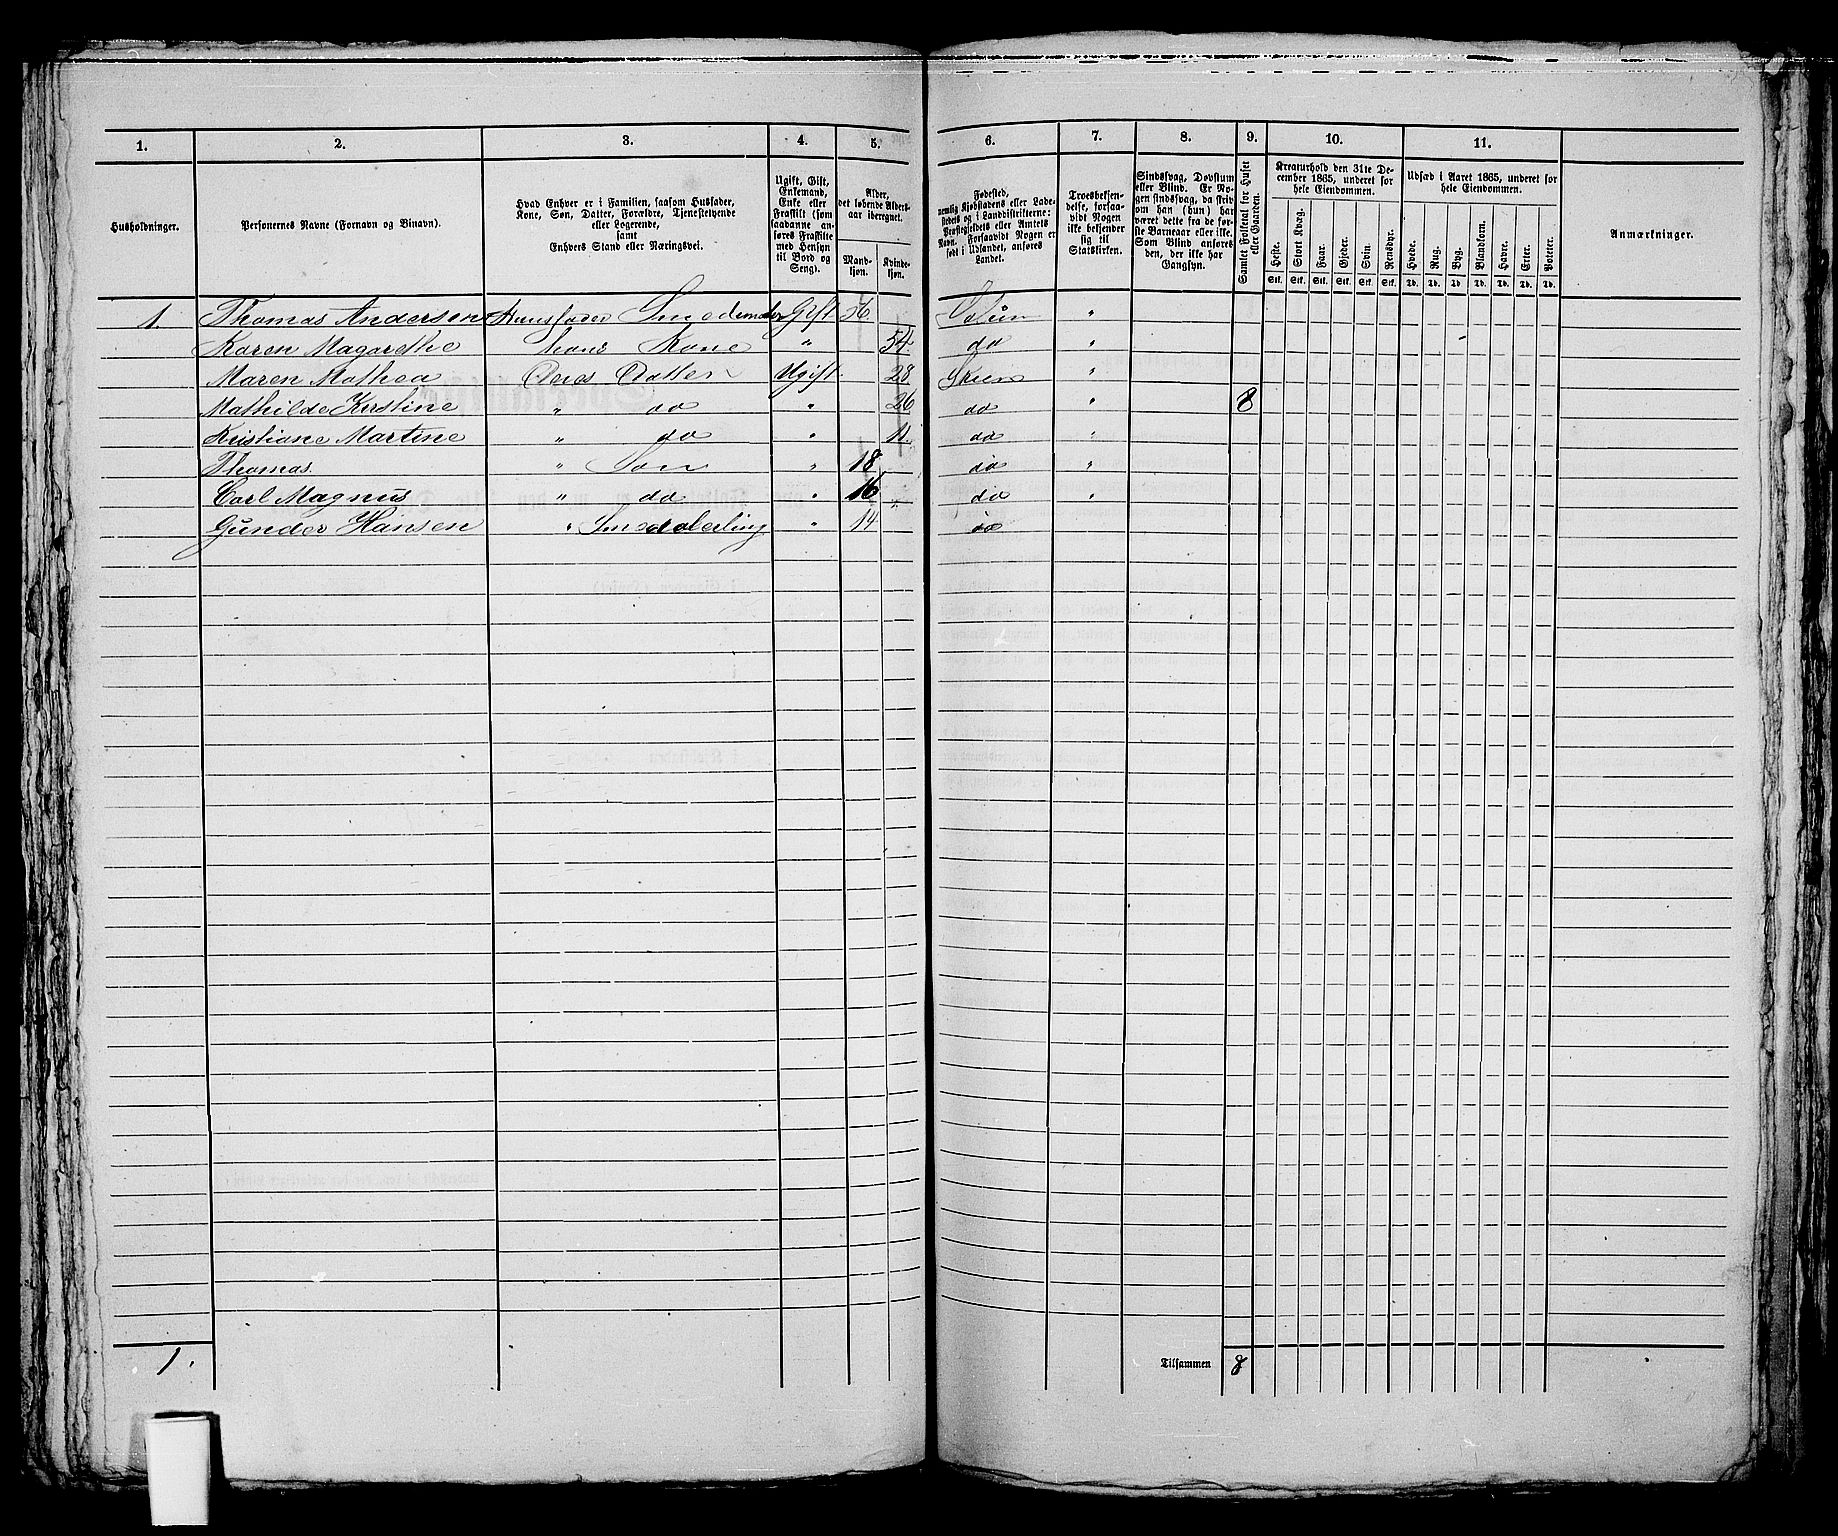 1. 2. 3. 4. 5. 6. 7. 8. 9. 10. 11.
Husholdninger.
Personernes Navne (Fornavn og Binavn).
Hvad Enhver er i Familien, saasom Husfader,
Kone, Søn, Datter, Forældre, Tjenestetyende
eller Logerende,
samt
Enhvers Stand eller Næringsvei.
Ugift, Gift,
Enkemand,
Enke eller
Fraskilt (som
saadanne an-
føres Fraskilte
med Hensyn
til Bord og
Seng).
Alder,
det løbende Alders-
aar iberegnet.
Mand-
kjøn.
Kvinde-
kjøn.
Fødested,
nemlig Kjøbstadens eller Lade-
stedets og i Landdistrikterne:
Præstegjeldets eller Amtets
Navn. Forsaavidt Nogen er
født i Udlandet, anføres
Landet.
Troesbekjen-
delse, forsaa-
vidt Nogen
ikke bekjender
sig til
Statskirken.
Sindssvag, Døvstum
eller Blind. Er No-
gen sindssvag, da skriv
om han (hun) har
været dette fra de før-
ste Barneaar eller ikke.
Som Blind anføres
den, der ikke har
Gangsyn.
Samlet Folketal for Huset
eller Gaarden.
Kreaturhold den 31te De-
cember 1865, underet for
hele Eiendommen.
Heste. Stort Kvæg. Faar. Gjeder. Svin. Rensdyr.
Stk. Stk. Stk. Stk. Stk. Stk.
Udsæd i Aaret 1865, underet for
hele Eiendommen.
Hvede. Rug. Byg. Blandkorn. Havre. Erter. Poteter.
Td. Td. Td. Td. Td. Td. Td.
Anmærkninger.
1. Thomas Andersen Huusfader Gift 56 "
Karen Magarethe hans Kone " 54. do "
Maren Mathea Deres Datter Ugift 28 Skien "
Mathilde Kristine " do " 26 do " 8
Kristiane Martine " do " 11 do "
Thomas. " Søn " 18 do "
Carl Magnus " do " 16 do "
Gunder Hansen " " 14 do
1. Tilsammen 8